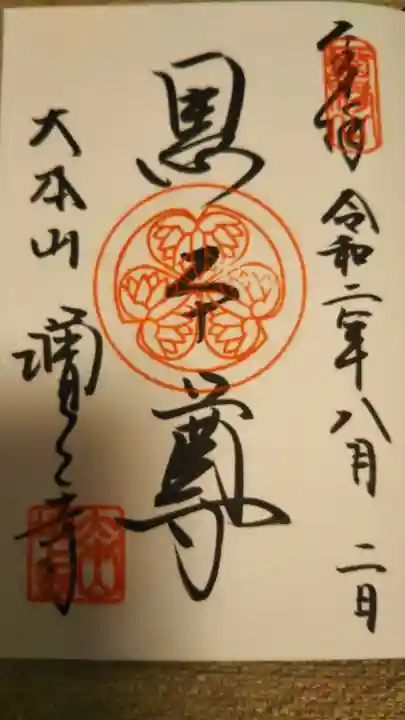 奉拝 令和二年八月二日
黒本尊
大本山 増上寺